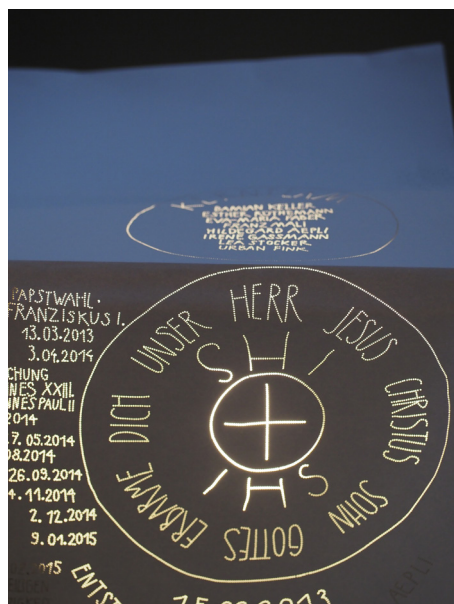 DAMIAN KELLER
ESTHER RÜTHEMANN
EVA-MARIA FABER
FRANZ MALI
HILDEGARD AEPLI
IRENE GASSMANN
LEA STOCKER
URBAN FINK
PAPSTWAHL.
FRANZISKUS I.
13.03.2013
3.04.2014
CHUNG
NES XXIII.
NNES PAUL II
2014
7.05.2014
08.2014
26.09.2014
4.11.2014
2.12.2014
9.01.2015
015
HERR JESUS CHRISTUS SOHN GOTTES ERBARME DICH UNSER
SHI
IHS
ENTST
AEPLI